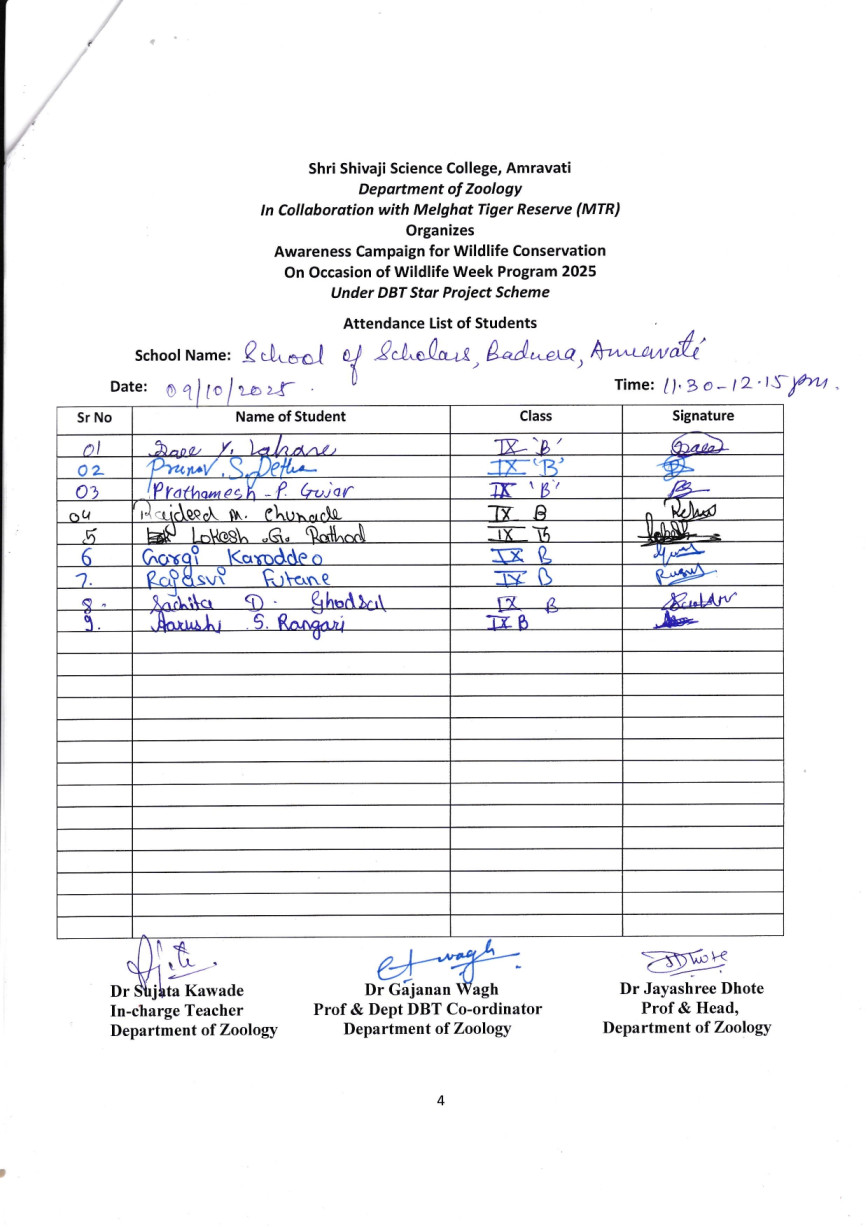 Shri Shivaji Science College, Amravati
Department of Zoology
In Collaboration with Melghat Tiger Reserve (MTR)
Organizes
Awareness Campaign for Wildlife Conservation
On Occasion of Wildlife Week Program 2025
Under DBT Star Project Scheme
Attendance List of Students
School Name: School of Scholars, Badnera, Amravati
Date: 09/10/2025 . Time: 11.30-12.15 pm.
Sr No Name of Student Class Signature
01 Y. Lahare IX 'B'
02 S. IX 'B'
03 Prathamesh - P. Gujar IX 'B'
04 M. IX B
5 Lokesh .G. Rathod IX B
6 Gargi Karoddeo IX B
7. Rajasvi Futane IX B
8. D. IX B
9. Aarushi S. Rangari IX B
Dr Sujata Kawade Dr Gajanan Wagh Dr Jayashree Dhote
In-charge Teacher Prof & Dept DBT Co-ordinator Prof & Head,
Department of Zoology Department of Zoology Department of Zoology
4